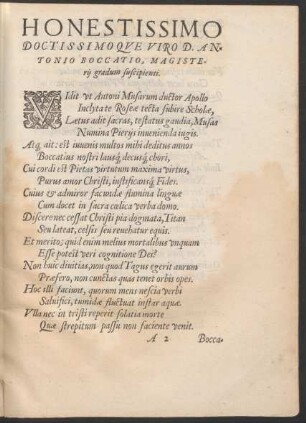 HONESTISSIMO
DOCTISSIMOQVE VIRO D. AN-
TONIO BOCCATIO, MAGISTE-
rij gradum suscipienti.
VIdit vt Antoni Musarum ductor Apollo
Inclytate Roseæ tecta subire Scholæ,
Lætus adit sacras, testatus gaudia, Musas
Numina Pierijs inuenienda iugis.
Atq; ait: est iuuenis multos mihi deditus annos
Boccatius nostri lausq; decusq; chori,
Cui cordi est Pietas virtutum maxima virtus,
Purus amor Christi, iustificansq; Fides.
Cuius & admiror facundæ flumina linguæ
Cum docet in sacra cælica verba domo.
Discere nec cessat Christi pia dogmata, Titan
Seu lateat, celsis seu reuehatur equis.
Et merito; quid enim melius mortalibus vnquam
Esse potest veri cognitione Dei?
Non huic diuitias, non quod Tagus egerit aurum
Præfero, non cunctas quas tenet orbis opes.
Hoc illi faciunt, quorum mens nescia verbi
Saluifici, tumidæ fluctuat instar aquæ.
Vlla nec in tristi reperit solatia morte
Quæ strepitum passu non faciente venit.
A 2 Bocca-